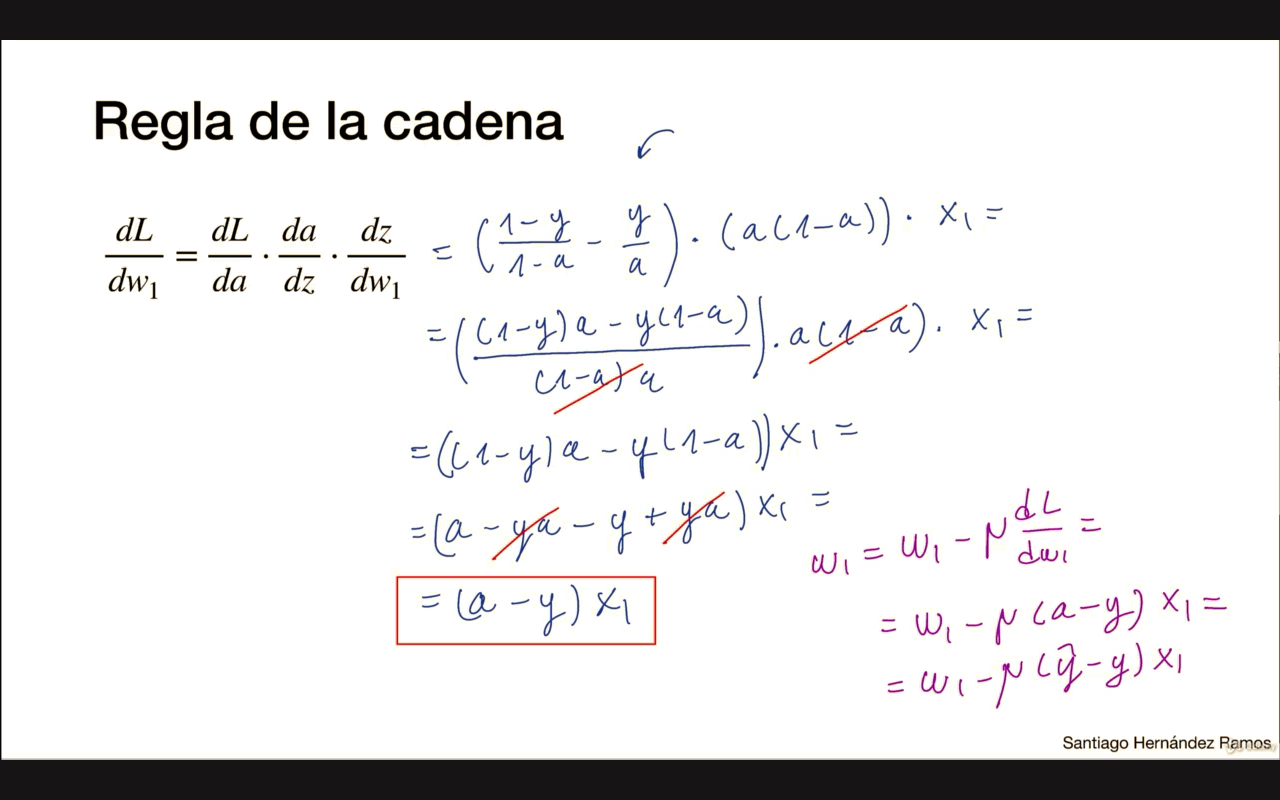 Regla de la cadena
dL/dw₁ = dL/da · da/dz · dz/dw₁ = ((1-y)/(1-a) - y/a) · (a(1-a)) · x₁ =
= (((1-y)a - y(1-a))/((1-a)a)) · a(1-a)) · x₁ =
= ((1-y)a - y(1-a))x₁ =
= (a - ya - y + ya)x₁ =
= (a - y) x₁
w₁ = w₁ - μ dL/dw₁ =
= w₁ - μ(a-y) x₁ =
= w₁ - μ(ŷ-y) x₁
Santiago Hernández Ramos